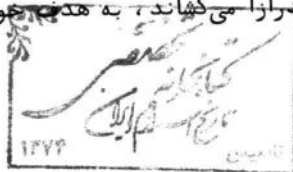 درازا می‌کشاند، به هدف خو
کتابخانه تخصصی
تاریخ اسلام و ایران
۱۳۷۴
تأسیس